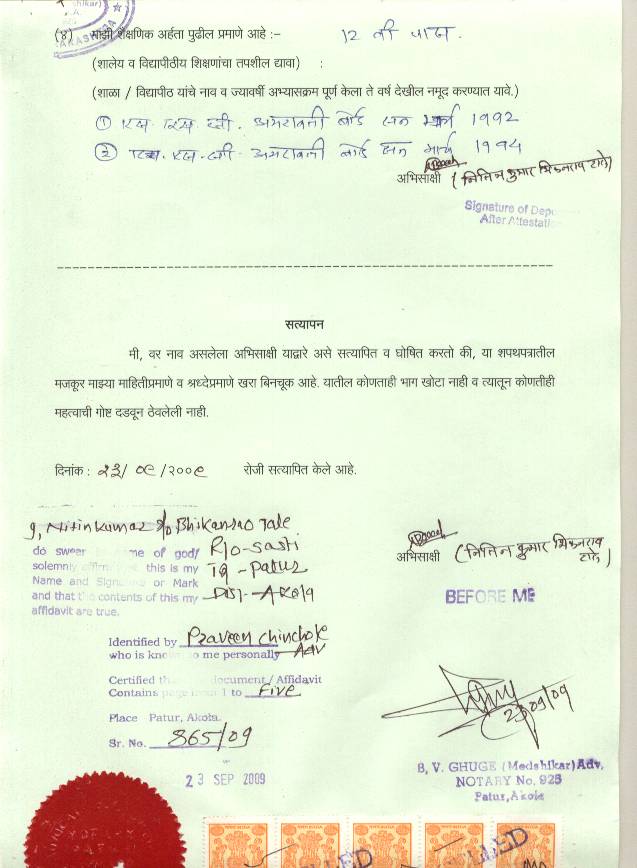 shikar)
AKASHTRA
(8) माझी शैक्षणिक अर्हता पुढील प्रमाणे आहे :– 12 वी पास.
(शालेय व विद्यापीठीय शिक्षणांचा तपशील द्यावा) :
(शाळा / विद्यापीठ यांचे नाव व ज्यावर्षी अभ्यासक्रम पूर्ण केला ते वर्ष देखील नमूद करण्यात यावे.)
① एस. एस. सी. अमरावती बोर्ड सन मार्च 1992
② एच. एस. सी. अमरावती बोर्ड सन मार्च 1994
अभिसाक्षी (नितिन कुमार भिकनराव टाले)
Signature of Depo
After Attestatio
सत्यापन
मी, वर नाव असलेला अभिसाक्षी याद्वारे असे सत्यापित व घोषित करतो की, या शपथपत्रातील
मजकूर माझ्या माहितीप्रमाणे व श्रध्देप्रमाणे खरा बिनचूक आहे. यातील कोणताही भाग खोटा नाही व त्यातून कोणतीही
महत्वाची गोष्ट दडवून ठेवलेली नाही.
दिनांक : २३/०९/२००९ रोजी सत्यापित केले आहे.
I, Nitinkumar s/o Bhikanrao Tale
do swear name of god/ R/o-Sasti
solemnly this is my Tq-Patur
Name and Sign or Mark Dist-Akola
and that the contents of this my
affidavit are true.
अभिसाक्षी (नितिन कुमार भिकनराव टाले)
BEFORE ME
Identified by Praveen Chinchole
who is known to me personally Adv
Certified document/Affidavit
Contains page 1 to Five
Place Patur, Akola.
Sr. No. 865/09
23 SEP 2009
23/09/09
B, V. GHUGE (Medshikar) Adv.
NOTARY No. 925
Patur, Akola